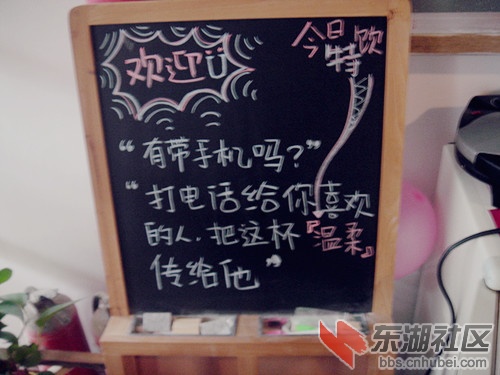 欢迎
今日特饮
“有带手机吗？”
“打电话给你喜欢
的人，把这杯『温柔』
传给他”
东湖社区
bbs.cnhubei.com